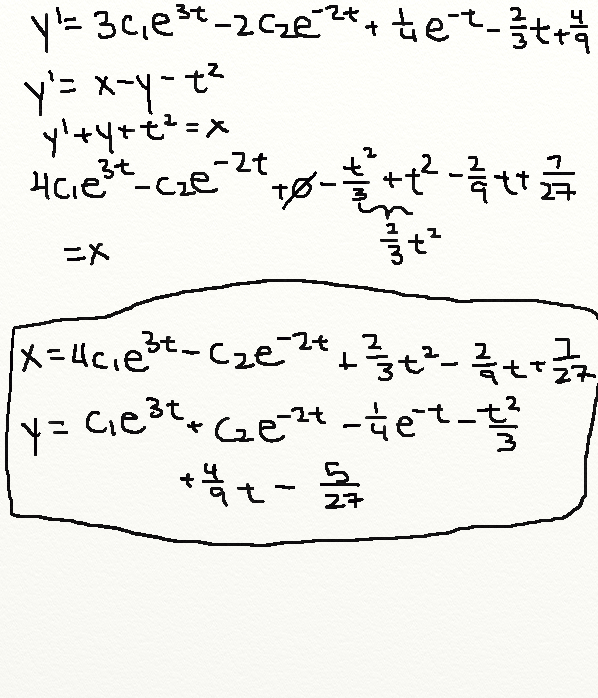 y' = 3c₁e^{3t} - 2c₂e^{-2t} + \frac{1}{4}e^{-t} - \frac{2}{3}t + \frac{4}{9}
y' = x - y - t²
y' + y + t² = x
4c₁e^{3t} - c₂e^{-2t} + 0̸ - \frac{t²}{3} + t² - \frac{2}{9}t + \frac{7}{27}
\frac{2}{3}t²
= x
x = 4c₁e^{3t} - c₂e^{-2t} + \frac{2}{3}t² - \frac{2}{9}t + \frac{7}{27}
y = c₁e^{3t} + c₂e^{-2t} - \frac{1}{4}e^{-t} - \frac{t²}{3}
+ \frac{4}{9}t - \frac{5}{27}